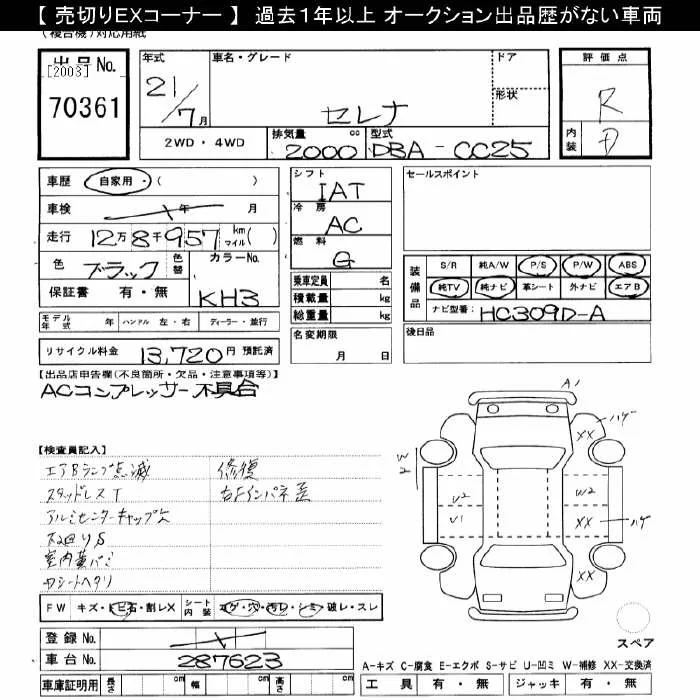 【 売切りEXコーナー 】 過去1年以上 オークション出品歴がない車両
(複合機)対応用紙
出品No.
[2003]
70361
年式
21/7月
車名・グレード
セレナ
ドア
形状
評価点
R
内装
D
2WD・4WD
排気量 2000 cc
型式 DBA-CC25
車歴 自家用・( )
車検 年 月
走行 12万8千957 km マイル( )
色 ブラック 色替
カラーNo. KH3
保証書 有・無
モデル年式 年 ハンドル 左・右 ディーラー・並行
リサイクル料金 13,720円 預託済
シフト IAT
冷房 AC
燃料 G
乗車定員 名
積載量 kg
総重量 kg
名変期限 月 日
セールスポイント
装備品
S/R 純A/W P/S P/W ABS
純TV 純ナビ 革シート 外ナビ エアB
ナビ型番: HC309D-A
後日品
【出品店申告欄(不良箇所・欠品・注意事項等)】
ACコンプレッサー不具合
【検査員記入】
エアBランプ点滅
スタッドレスT
アルミセンターキャップ欠
室内黄バミ
Dシートヘタリ
修復
右Fインパネ歪
FW キズ・トビ石・割レX
シート内装 コゲ・穴・汚レ・シミ・破レ・スレ
登録No.
車台No. 287623
車庫証明用 長さ cm 幅 cm 高さ cm
A1
XX ハゲ
W
U2
U1
W2
XX ハゲ
XX
スペア
A-キズ C-腐食 E-エクボ S-サビ U-凹ミ W-補修 XX-交換済
工具 有・無 ジャッキ 有・無